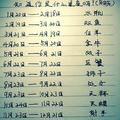 知道你是什么星座吗?(阳历)
1月20日——2月18日 水瓶
2月19日——3月20日 双鱼
3月21日——4月19日 白羊
4月20日——5月20日 金牛
5月21日——6月21日 双子
6月22日——7月22日 巨蟹
7月23日——8月22日 狮子
8月23日——9月22日 处女
9月23日——10月23日 天秤
10月24日——11月22日 天蝎
11月23日——12月21日 射手